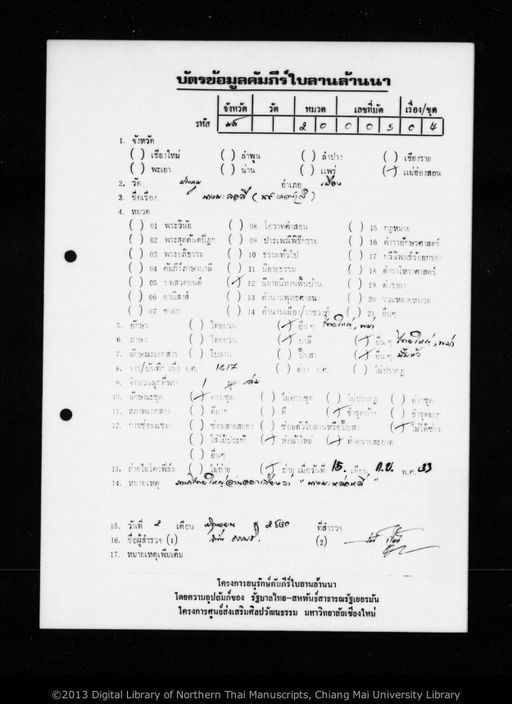 บัตรข้อมูลคัมภีร์ใบลานล้านนา
จังหวัด วัด หมวด เลขที่มัด เรื่อง/ชุด
รหัส มส 2 0 0 0 5 0 4
1. จังหวัด
( ) เชียงใหม่ ( ) ลำพูน ( ) ลำปาง ( ) เชียงราย
( ) พะเยา ( ) น่าน ( ) แพร่ (/) แม่ฮ่องสอน
2. วัด อำเภอ เมือง
3. ชื่อเรื่อง
4. หมวด
( ) 01 พระวินัย ( ) 08 โอวาทคำสอน ( ) 15 กฎหมาย
( ) 02 พระสุตตันตปิฎก ( ) 09 ประเพณีพิธีกรรม ( ) 16 ตำราอักษรศาสตร์
( ) 03 พระอภิธรรม ( ) 10 ธรรมทั่วไป ( ) 17 กวีนิพนธ์ร้อยกรอง
( ) 04 คัมภีร์ภาษาบาลี ( ) 11 นิยายธรรม ( ) 18 ตำราโหราศาสตร์
( ) 05 บทสวดมนต์ (/) 12 นิยายนิทานพื้นบ้าน ( ) 19 ตำรายา
( ) 06 อานิสงส์ ( ) 13 ตำนานพุทธศาสนา ( ) 20 รวมหลายหมวด
( ) 07 ชาดก ( ) 14 ตำนานเมือง/ราชวงศ์ ( ) 21 อื่นๆ
5. อักษร ( ) ไทยยวน (/) อื่นๆ ไทยใหญ่, พม่า
6. ภาษา ( ) ไทยยวน (/) บาลี (/) อื่นๆ ไทยใหญ่, พม่า
7. ลักษณะเอกสาร ( ) ใบลาน ( ) ปั๊บสา (/) อื่นๆ
8. จาร/บันทึก เมื่อ จ.ศ. ( ) ต่าง จ.ศ. ( ) ไม่ปรากฏ
9. จำนวนผูกที่พบ 1 เล่ม
10. ลักษณะชุด (/) ครบชุด ( ) ไม่ครบชุด ( ) ไม่ปรากฏ ( ) ต่างชุด
11. สภาพเอกสาร ( ) ดีมาก ( ) ดี (/) ชำรุดบ้าง ( ) ชำรุดมาก
12. การซ่อมแซม ( ) ซ่อมสายสยอง ( ) ซ่อมตัวใบลานหรือปั๊บสา (/) ไม่ได้ซ่อม
( ) ใส่ไม้ประกับ (/) ห่อผ้าใหม่ (/) ทำความสะอาด
( ) อื่นๆ
13. ถ่ายไมโครฟิล์ม ( ) ไม่ถ่าย (/) ถ่าย เมื่อวันที่ 15. เดือน ก.ย. พ.ศ. 33
14. หมายเหตุ
15. วันที่ 2 เดือน ที่สำรวจ
16. ชื่อผู้สำรวจ (1) (2)
17. หมายเหตุเพิ่มเติม
โครงการอนุรักษ์คัมภีร์ใบลานล้านนา
โดยความอุปถัมภ์ของ รัฐบาลไทย-สหพันธ์สาธารณรัฐเยอรมัน
โครงการศูนย์ส่งเสริมศิลปวัฒนธรรม มหาวิทยาลัยเชียงใหม่
©2013 Digital Library of Northern Thai Manuscripts, Chiang Mai University Library